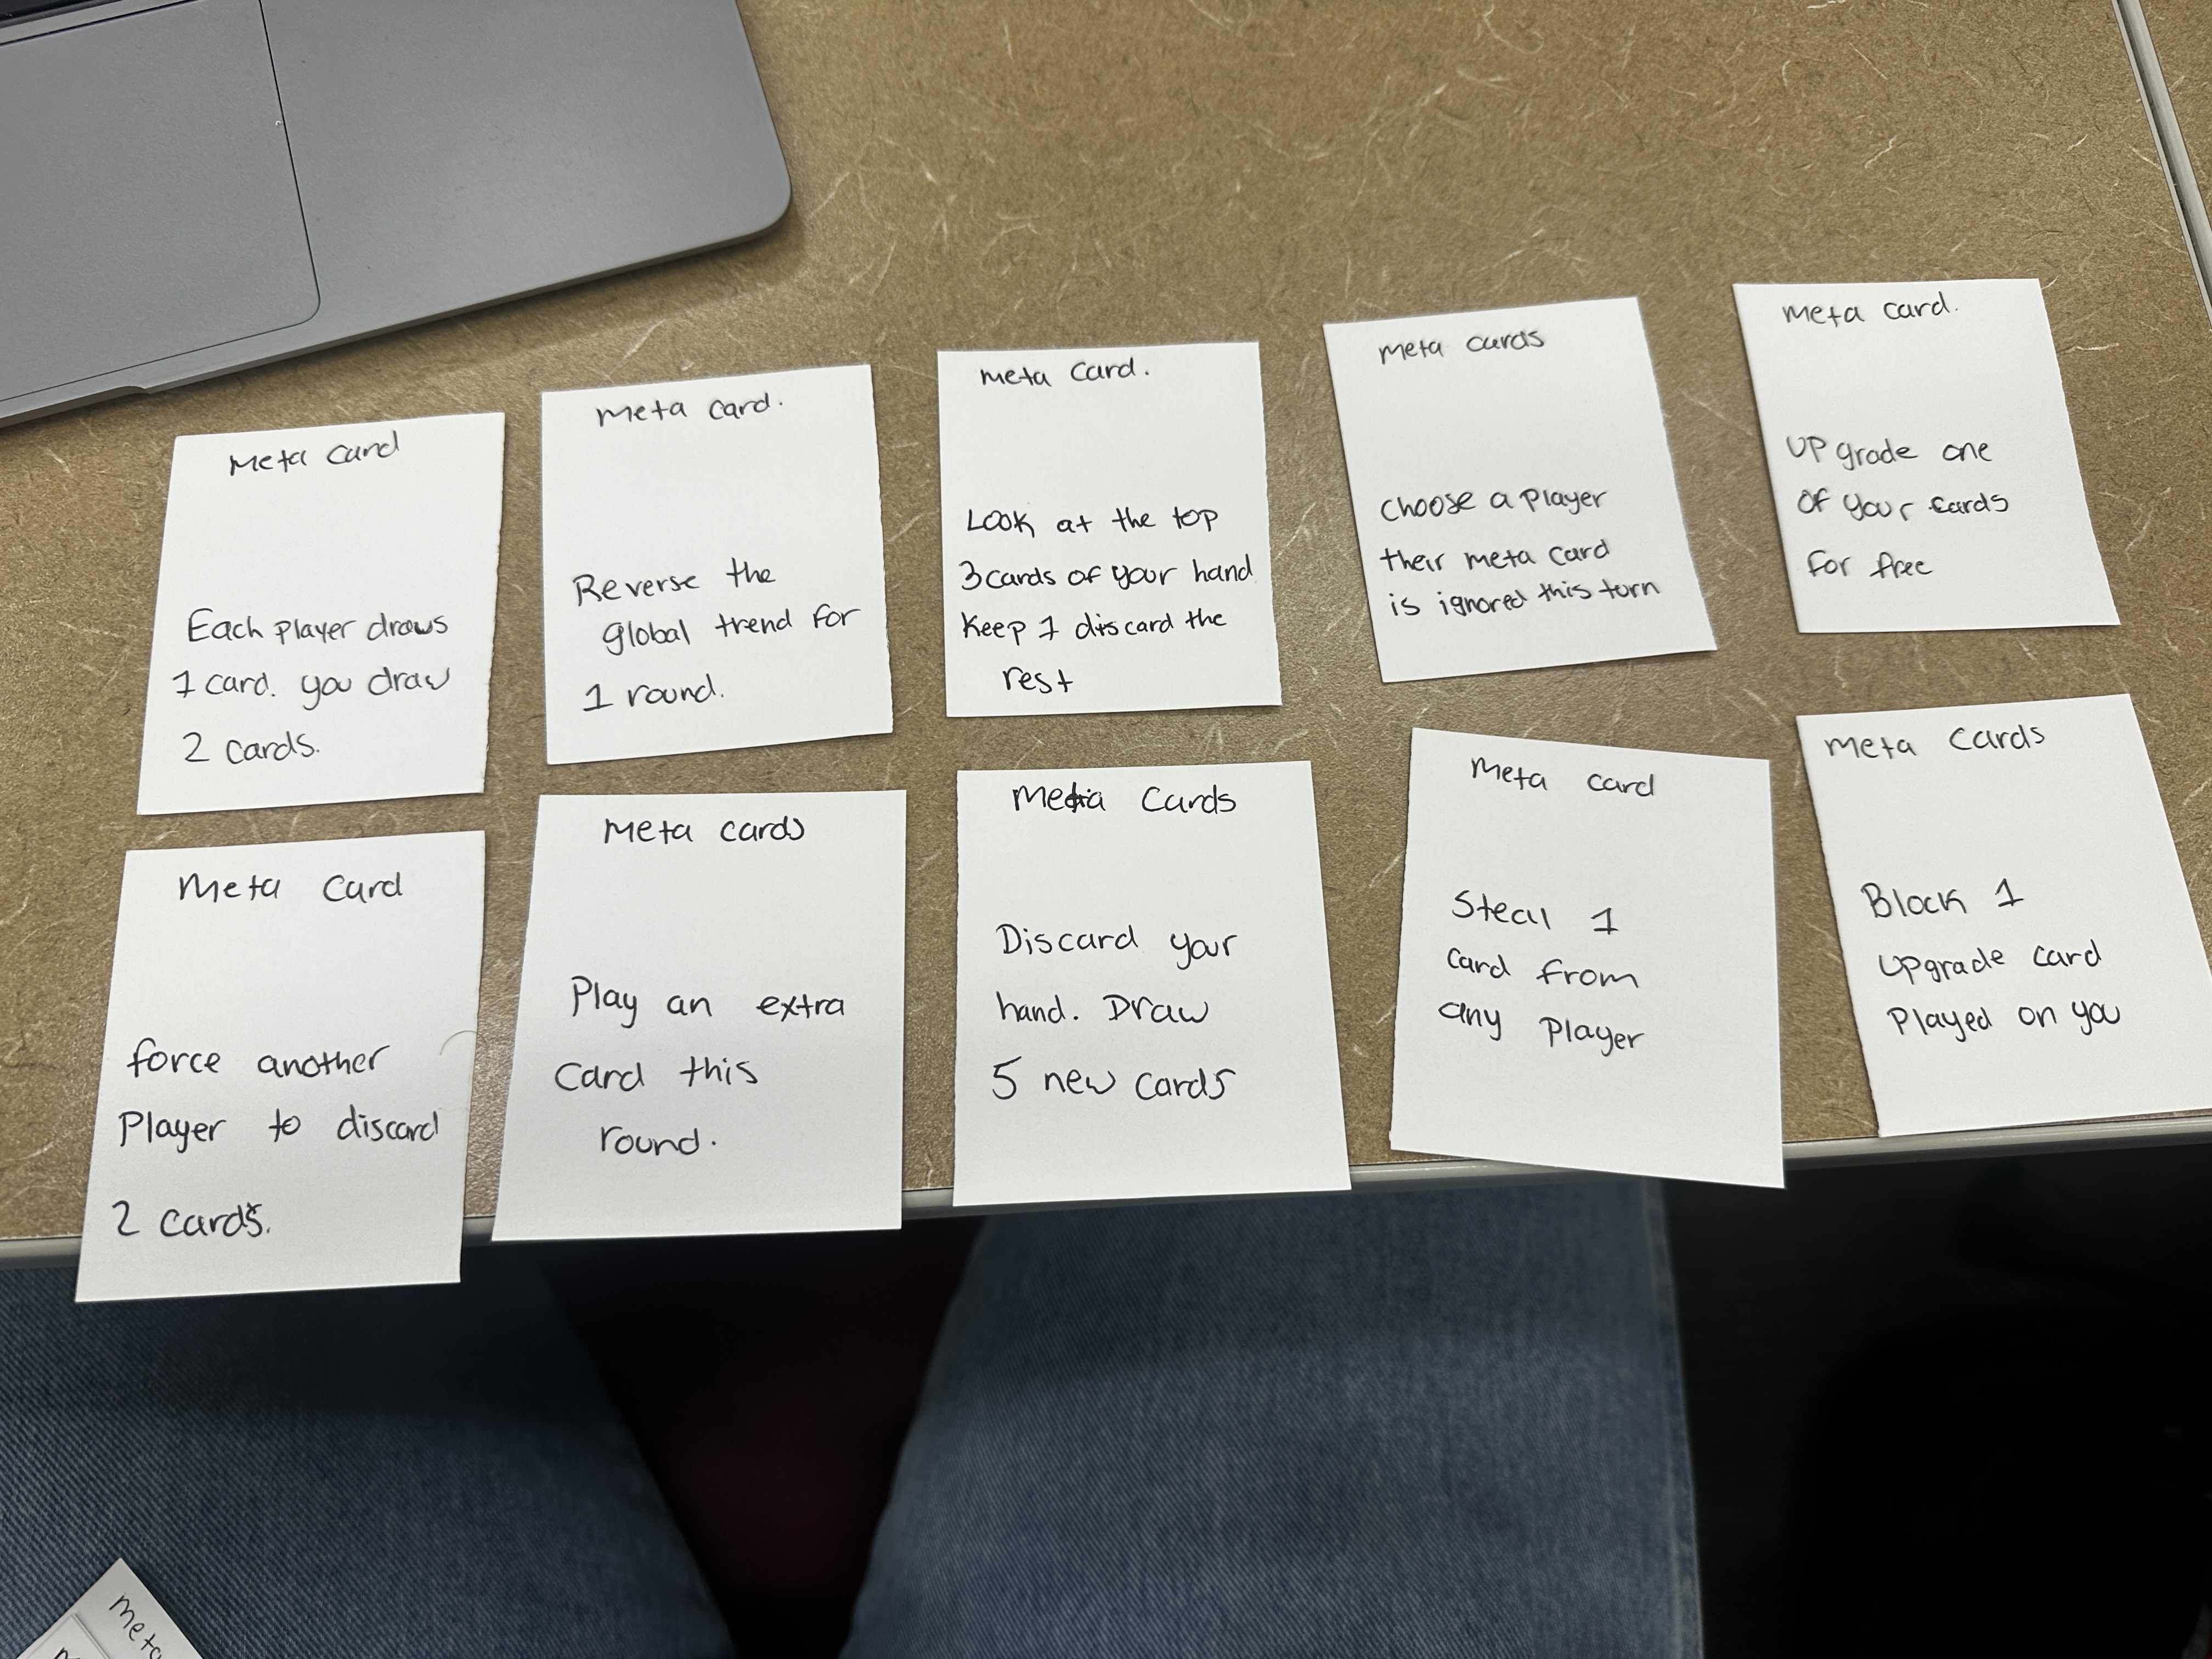 Meta Card
Each player draws
1 card. you draw
2 cards.
Meta Card.
Reverse the
global trend for
1 round.
Meta Card.
Look at the top
3 cards of your hand
Keep 1 discard the
rest
Meta Cards
Choose a Player
their meta card
is ignored this turn
Meta Card.
UPgrade one
of your cards
for free
Meta Card
force another
Player to discard
2 cards.
Meta Cards
Play an extra
Card this
round.
Meta Cards
Discard your
hand. Draw
5 new cards
Meta Card
Steal 1
Card from
any Player
Meta Cards
Block 1
UPgrade card
Played on you
Meta